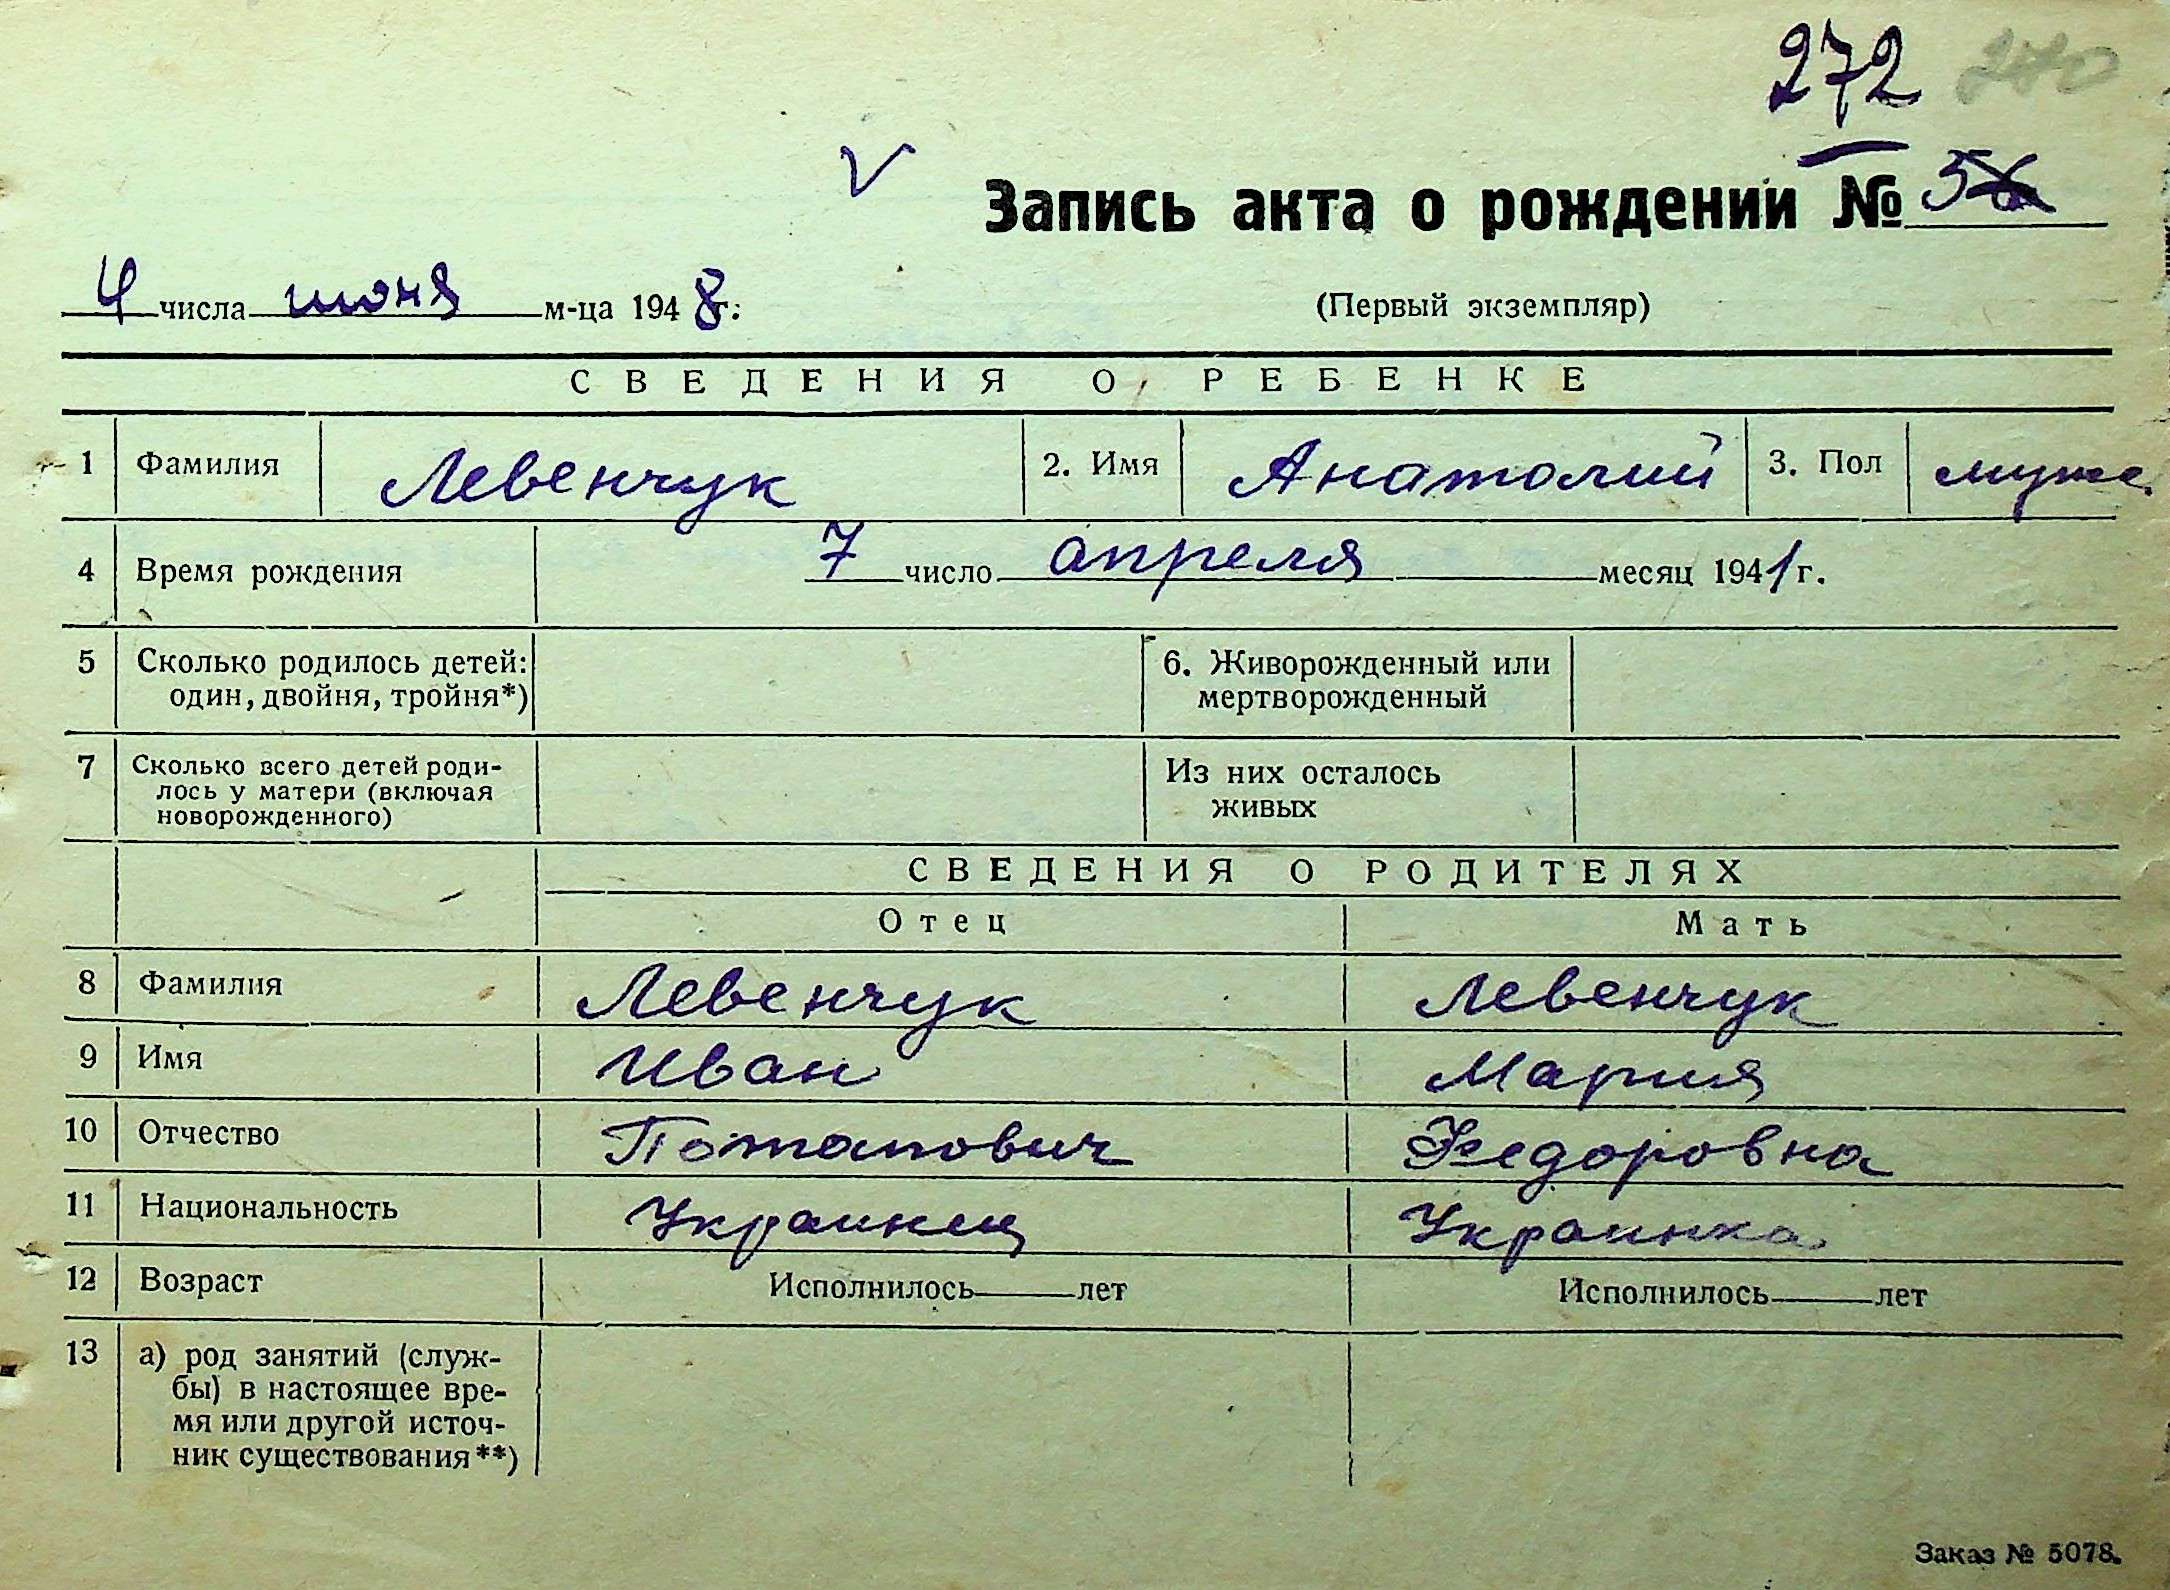 272 270
V
Запись акта о рождении № 5
4 числа июня м-ца 1948 г.
(Первый экземпляр)
СВЕДЕНИЯ О РЕБЕНКЕ
1 Фамилия Левенчук 2. Имя Анатолий 3. Пол муж.
4 Время рождения 7 число апреля месяц 1941 г.
5 Сколько родилось детей: 6. Живорожденный или
один, двойня, тройня*) мертворожденный
7 Сколько всего детей роди- Из них осталось
лось у матери (включая живых
новорожденного)
СВЕДЕНИЯ О РОДИТЕЛЯХ
Отец Мать
8 Фамилия Левенчук Левенчук
9 Имя Иван Мария
10 Отчество Потапович Федоровна
11 Национальность Украинец Украинка
12 Возраст Исполнилось лет Исполнилось лет
13 а) род занятий (служ-
бы) в настоящее вре-
мя или другой источ-
ник существования**)
Заказ № 5078.